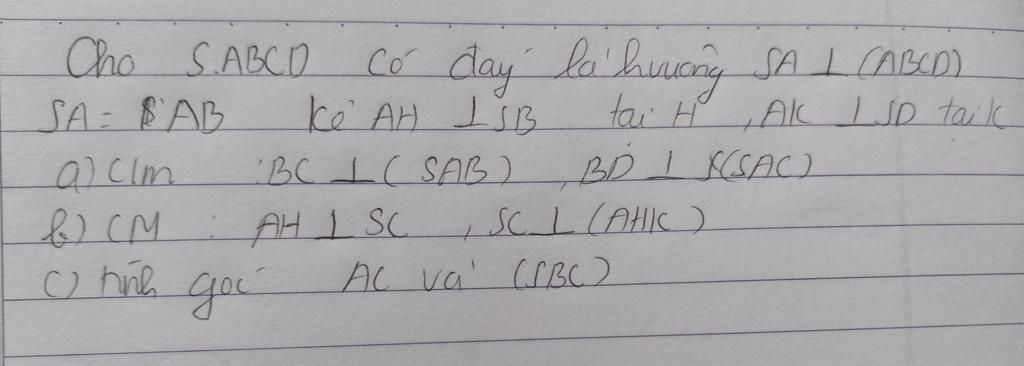 Cho S.ABCD có đáy là hình vuông SA ⊥ (ABCD)
SA = AB kẻ AH ⊥ SB tại H, AK ⊥ SD tại K
a) C/m : BC ⊥ (SAB), BD ⊥ (SAC)
b) CM : AH ⊥ SC, SC ⊥ (AHK)
c) tính góc AC và (SBC)